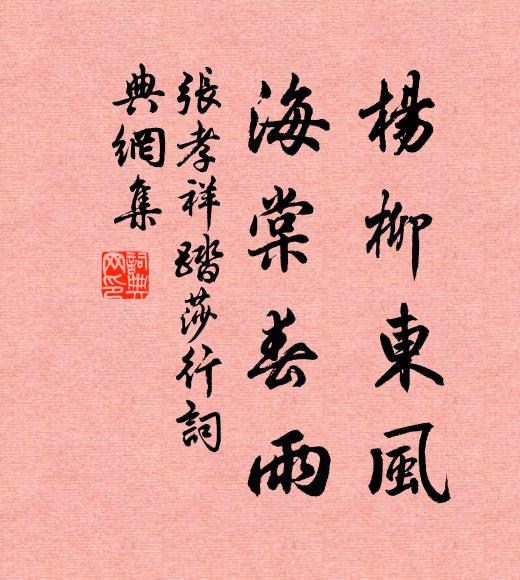 楊柳東風
海棠春雨
張孝祥踏莎行詞
典網集
詞典
网印